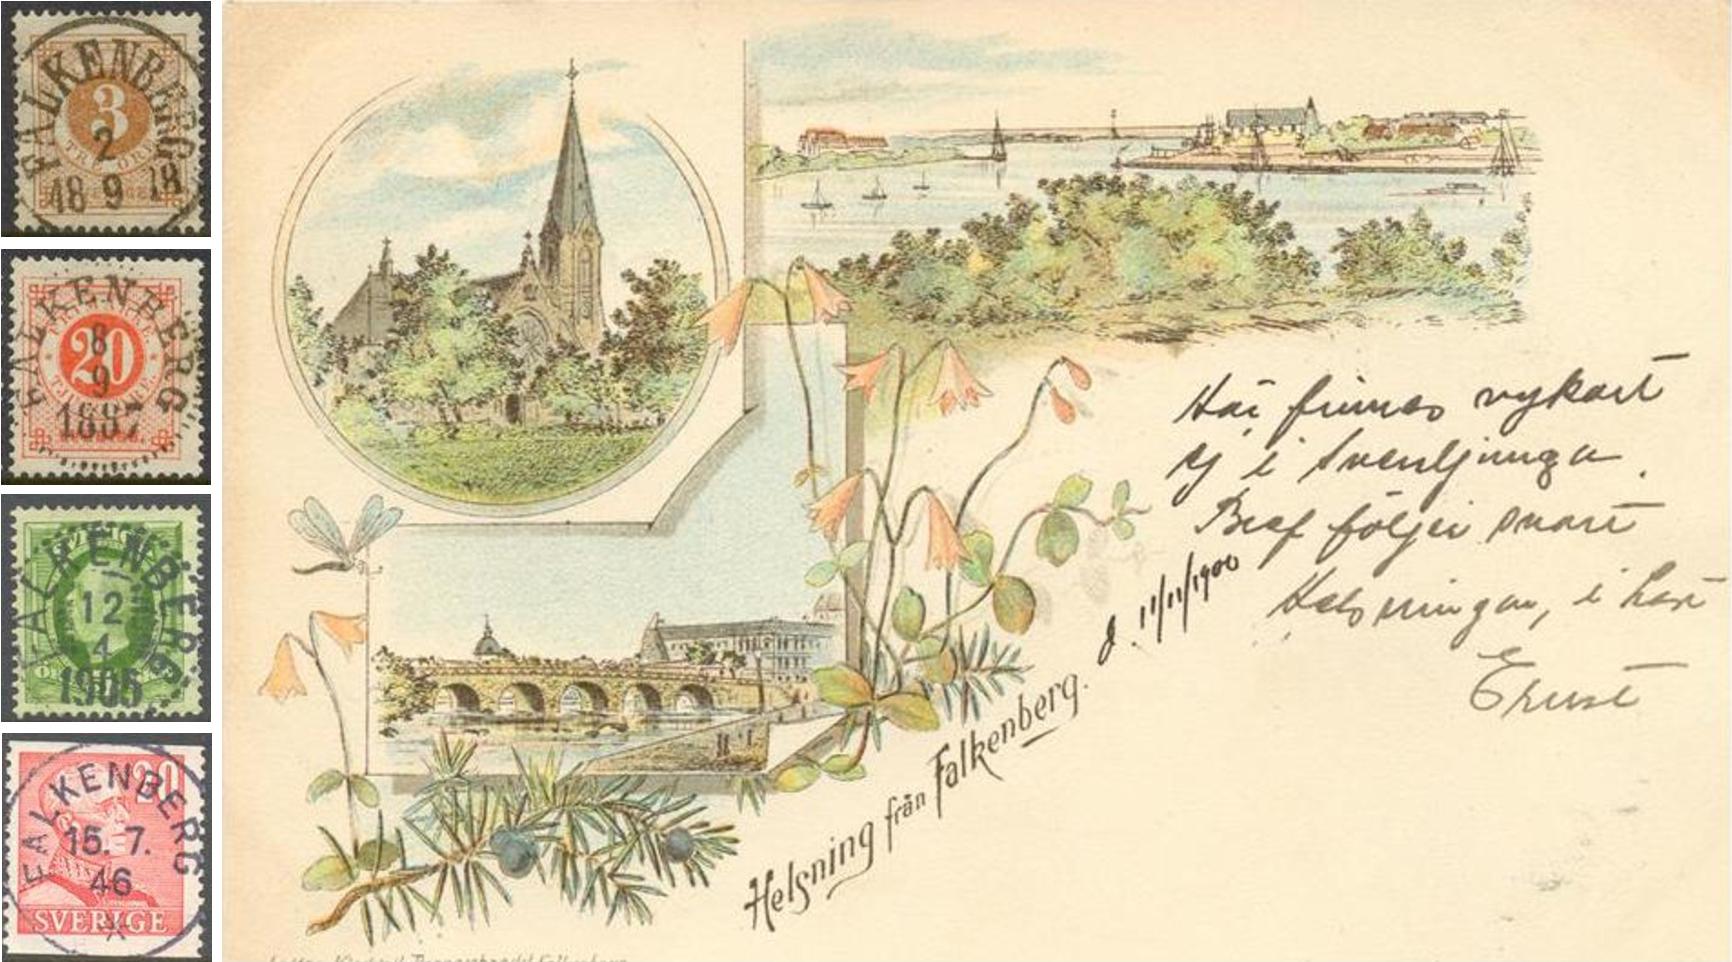 FALKENBERG
3
2
TRE ÖRE
18 9 18
FALKENBERG
8
20
9
1887
FALKENBERG
12
4
1905
20
FALKENBERG
15. 7.
46
SVERIGE
Här finnes vykort
ej i Svenljunga.
Bref följer snart
Helsningar, i hast
Ernst
Helsning från Falkenberg. d. 11/11/1900